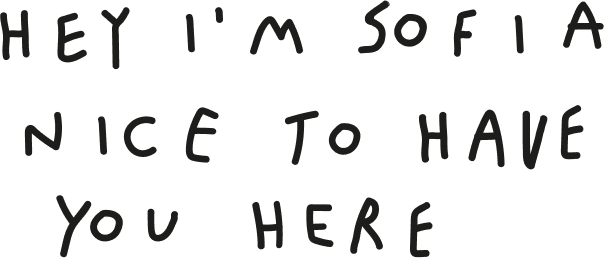 HEY I'M SOFIA
NICE TO HAVE
YOU HERE